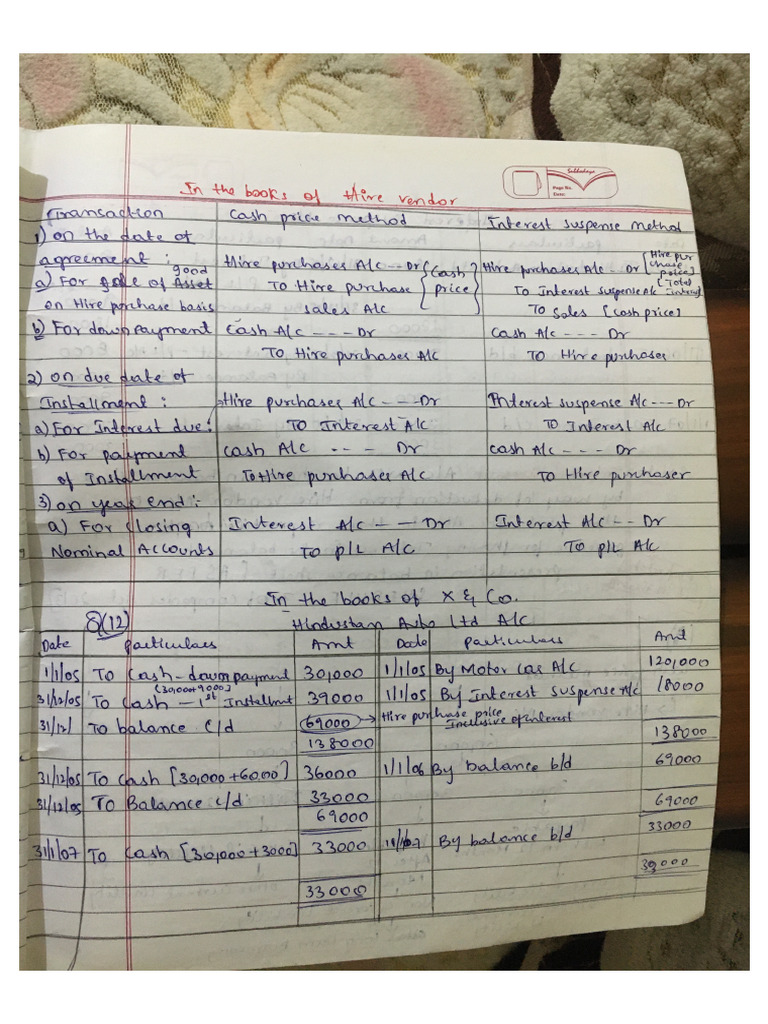 Sakhalaya
Page No.
Date:
In the books of Hire vendor
Transaction | Cash price method | Interest suspense method
1) on the date of
agreement : | Hire purchases A/c -- Dr {Cash | Hire purchases A/c -- Dr [Hire pur chase price]
a) For sale of good Asset | To Hire purchase price} | To Interest suspense A/c [Total Interest]
on Hire purchase basis | sales A/c | To Sales [cash price]
b) For down payment | Cash A/c --- Dr | Cash A/c --- Dr
To Hire purchases A/c | To Hire purchases
2) on due date of
Installment : | Hire purchases A/c --- Dr | Interest suspense A/c --- Dr
a) For Interest due: | To Interest A/c | To Interest A/c
b) For payment | cash A/c --- Dr | cash A/c --- Dr
of Installment | To Hire purchases A/c | To Hire purchaser
3) on year end :-
a) For closing | Interest A/c -- Dr | Interest A/c -- Dr
Nominal Accounts | To p/L A/c | To p/L A/c
In the books of X & Co.
Q(12) Hindustan Auto Ltd A/c
Date | particulars | Amt | Date | particulars | Amt
1/1/05 | To Cash - down payment | 30,000 | 1/1/05 | By Motor Car A/c | 120,000
[30,000+9000]
31/12/05 | To Cash - 1st Installment | 39000 | 1/1/05 | By Interest suspense A/c | 18000
31/12/ | To balance c/d | 69000 → Hire purchase price Inclusive of interest
138000 | 138000
31/12/05 | To Cash [30,000+6000] | 36000 | 1/1/06 | By balance b/d | 69000
31/12/05 | To Balance c/d | 33000
69000 | 69000
31/1/07 | To Cash [30,000+3000] | 33000 | 1/1/07 | By balance b/d | 33000
33000 | 33000